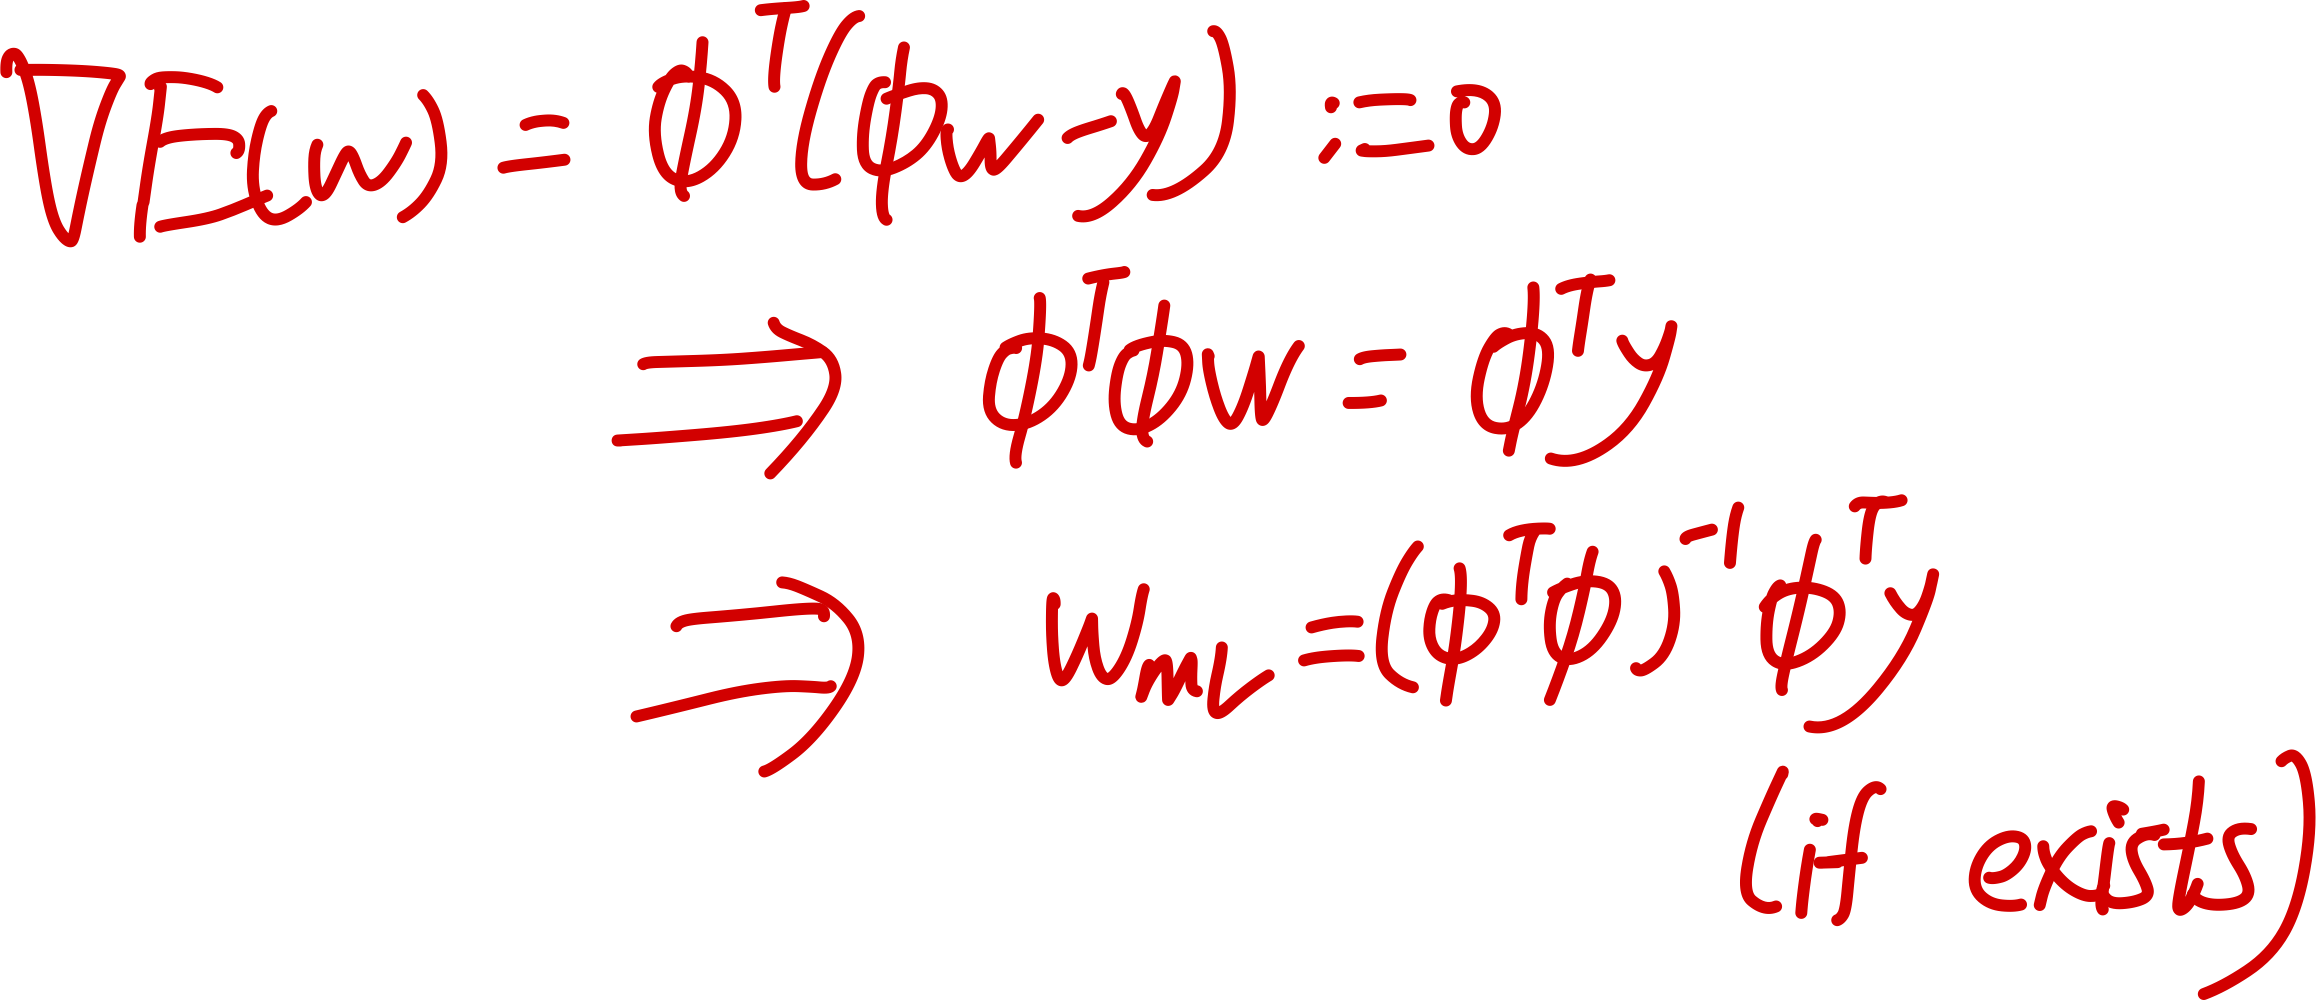 ∇E(w) = ϕᵀ(ϕw − y) := 0
⇒ ϕᵀϕw = ϕᵀy
⇒ w_ML = (ϕᵀϕ)⁻¹ϕᵀy
(if exists)